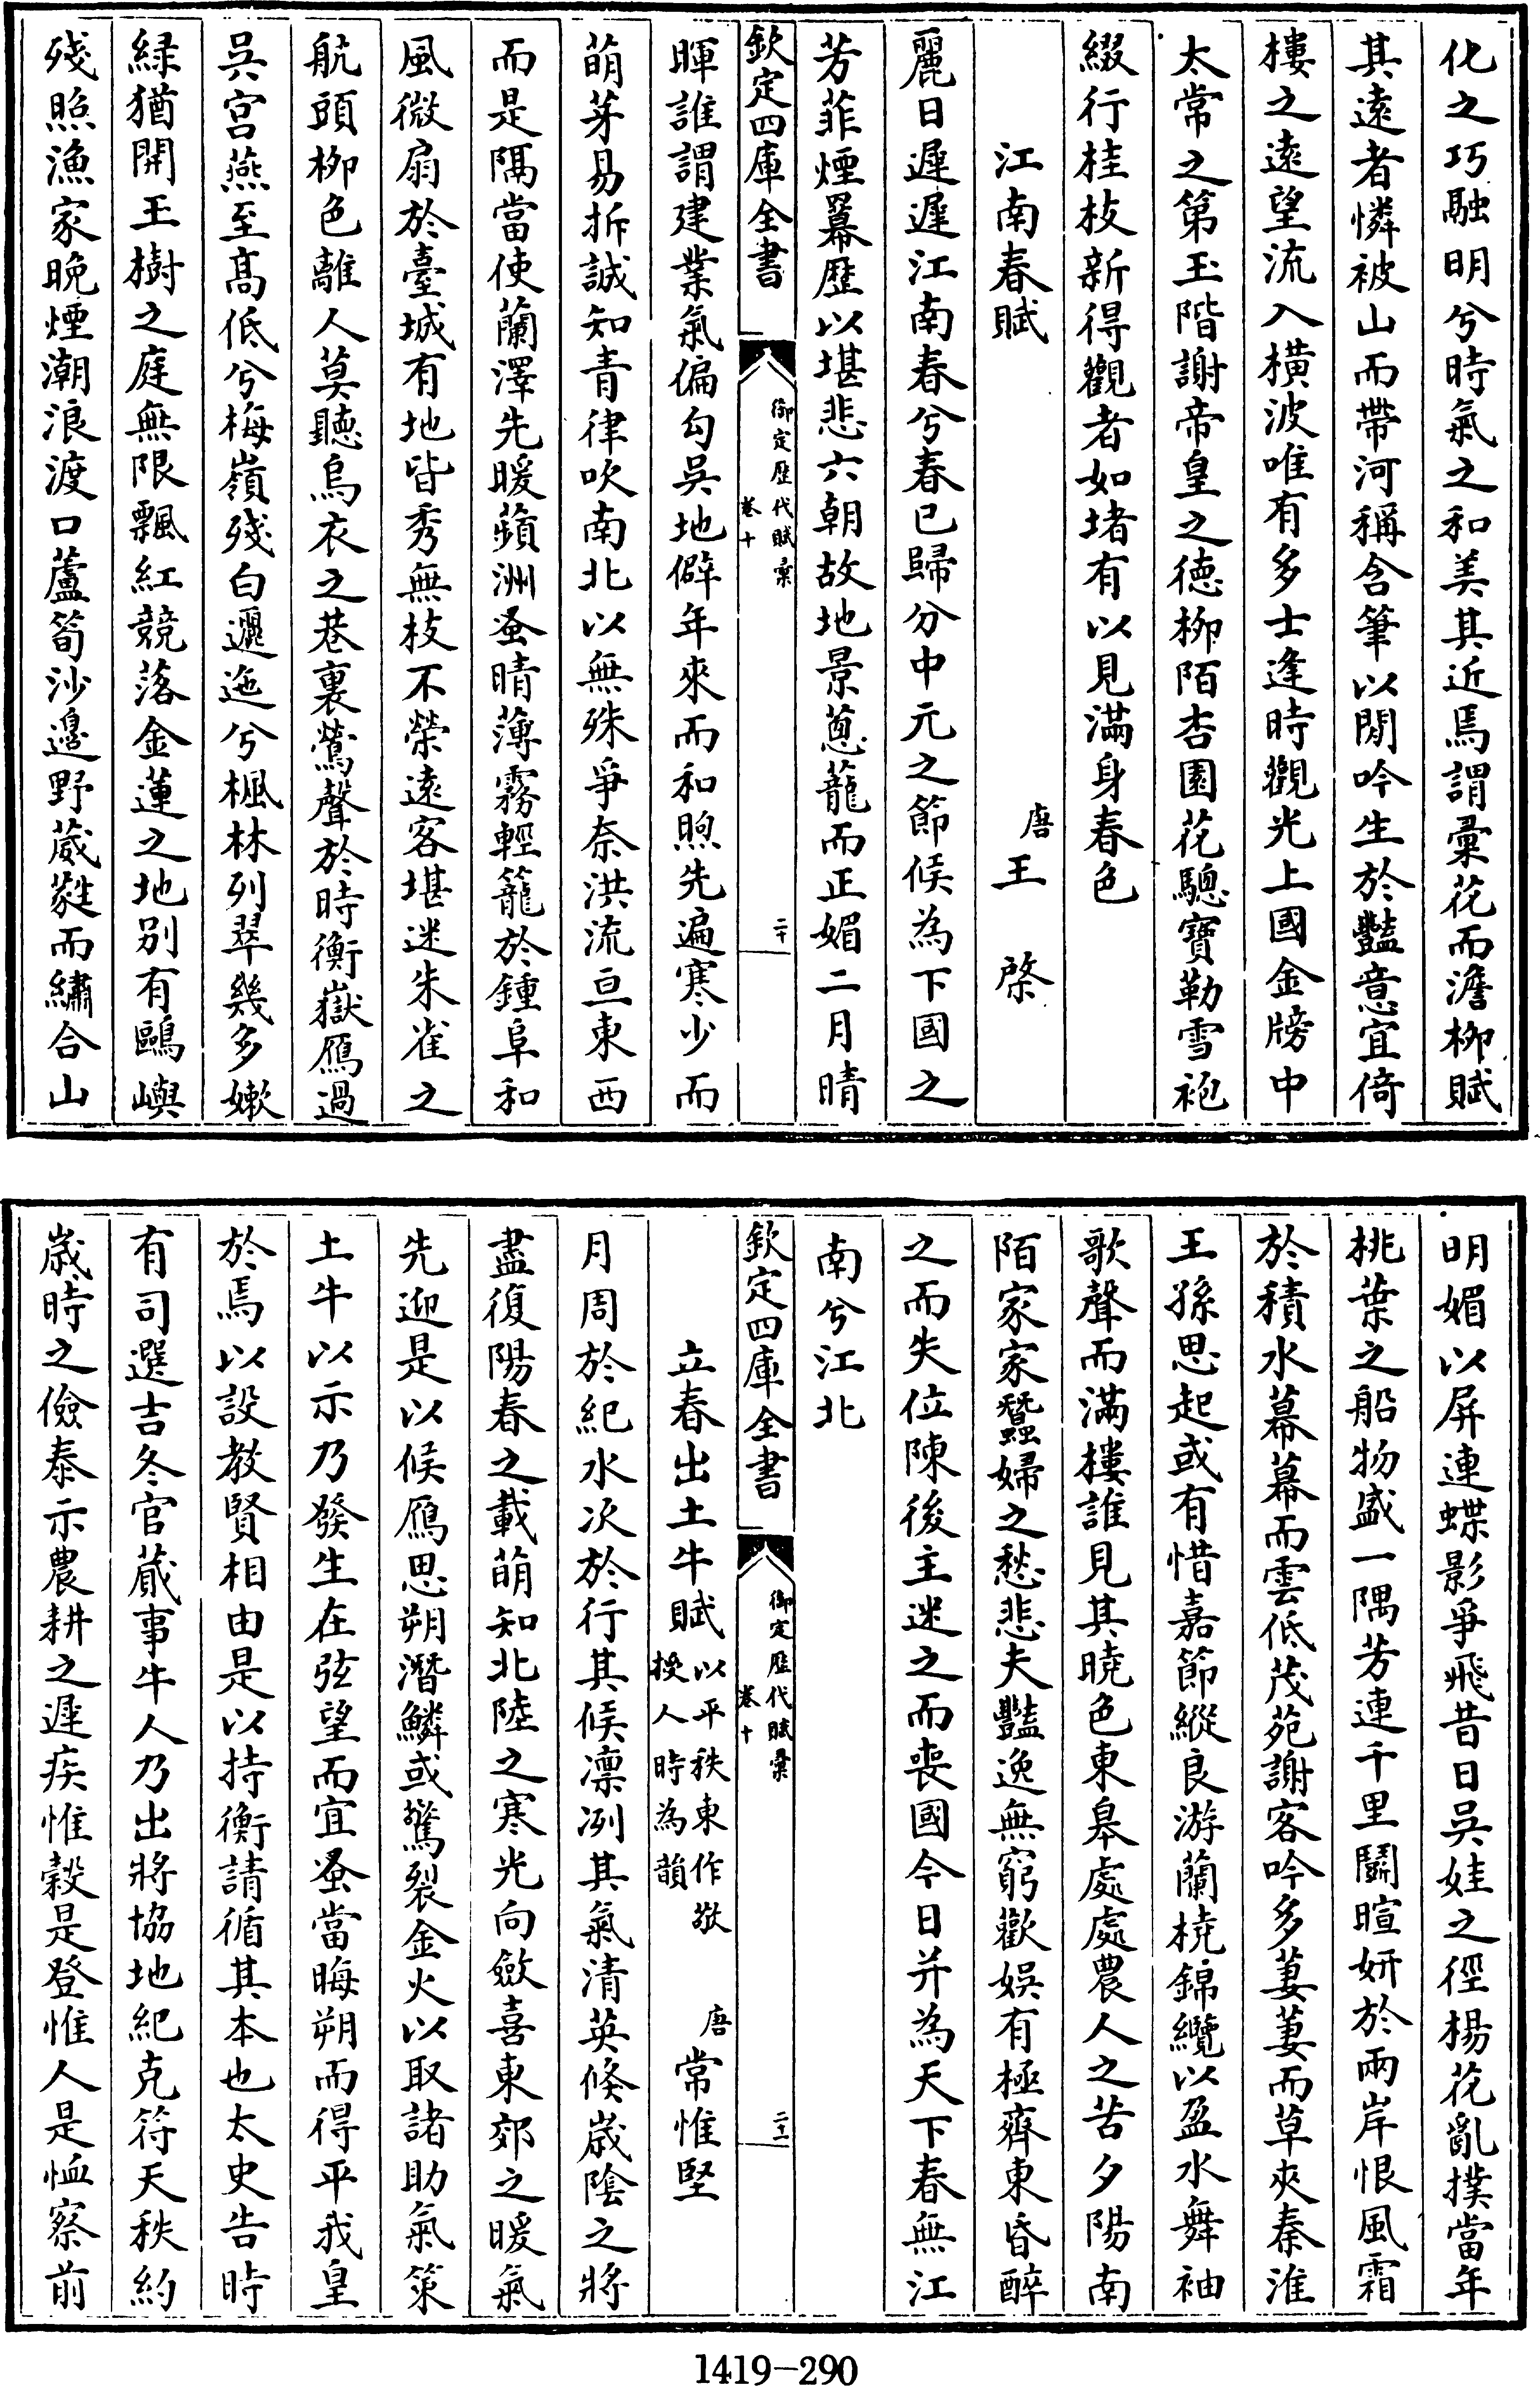 化之巧融明兮時氣之和美其近焉謂彚花而澹柳賦
其遠者憐被山而帶河稱含筆以閒吟生於豔意宜倚
樓之遠望流入橫波唯有多士逢時觀光上國金牓中
太常之第玉階謝帝皇之德柳陌杏園花驄寶勒雪袍
綴行桂枝新得觀者如堵有以見滿身春色
江南春賦 唐王棨
麗日遲遲江南春兮春已歸分中元之節候為下國之
芳菲煙羃歷以堪悲六朝故地景蔥蘢而正媚二月晴
欽定四庫全書 御定歷代賦彚 卷十 二十
暉誰謂建業氣偏勾吳地僻年來而和煦先遍寒少而
萌芽易拆誠知青律吹南北以無殊爭奈洪流亘東西
而是隔當使蘭澤先暖蘋洲蚤晴薄霧輕籠於鍾阜和
風微扇於臺城有地皆秀無枝不榮遠客堪迷朱雀之
航頭柳色離人莫聽烏衣之巷裏鶯聲於時衡嶽鴈過
吳宮燕至高低兮梅嶺殘白邐迤兮楓林列翠幾多嫩
綠猶開玉樹之庭無限飄紅競落金蓮之地別有鷗嶼
殘照漁家晚煙潮浪渡口蘆筍沙邊野葳蕤而繡合山
明媚以屏連蝶影爭飛昔日吳娃之徑楊花亂撲當年
桃葉之船物盛一隅芳連千里鬬暄妍於兩岸恨風霜
於積水幕幕而雲低茂苑謝客吟多萋萋而草夾秦淮
王孫思起或有惜嘉節縱良游蘭橈錦纜以盈水舞袖
歌聲而滿樓誰見其曉色東皋處處農人之苦夕陽南
陌家家蠶婦之愁悲夫豔逸無窮歡娛有極齊東昏醉
之而失位陳後主迷之而喪國今日并為天下春無江
南兮江北
欽定四庫全書 御定歷代賦彚 卷十 二十一
立春出土牛賦 以平秩東作敬授人時為韻 唐常惟堅
月周於紀水次於行其候凛冽其氣清英倏歲陰之將
盡復陽春之載萌知北陸之寒光向斂喜東郊之暖氣
先迎是以候鴈思朔潛鱗或驚裂金火以取諸助氣策
土牛以示乃發生在弦望而宜蚤當晦朔而得平我皇
於焉以設教賢相由是以持衡請循其本也太史告時
有司選吉冬官蕆事牛人乃出將協地紀克符天秩約
歲時之儉泰示農耕之遲疾惟穀是登惟人是恤察前
1419-290